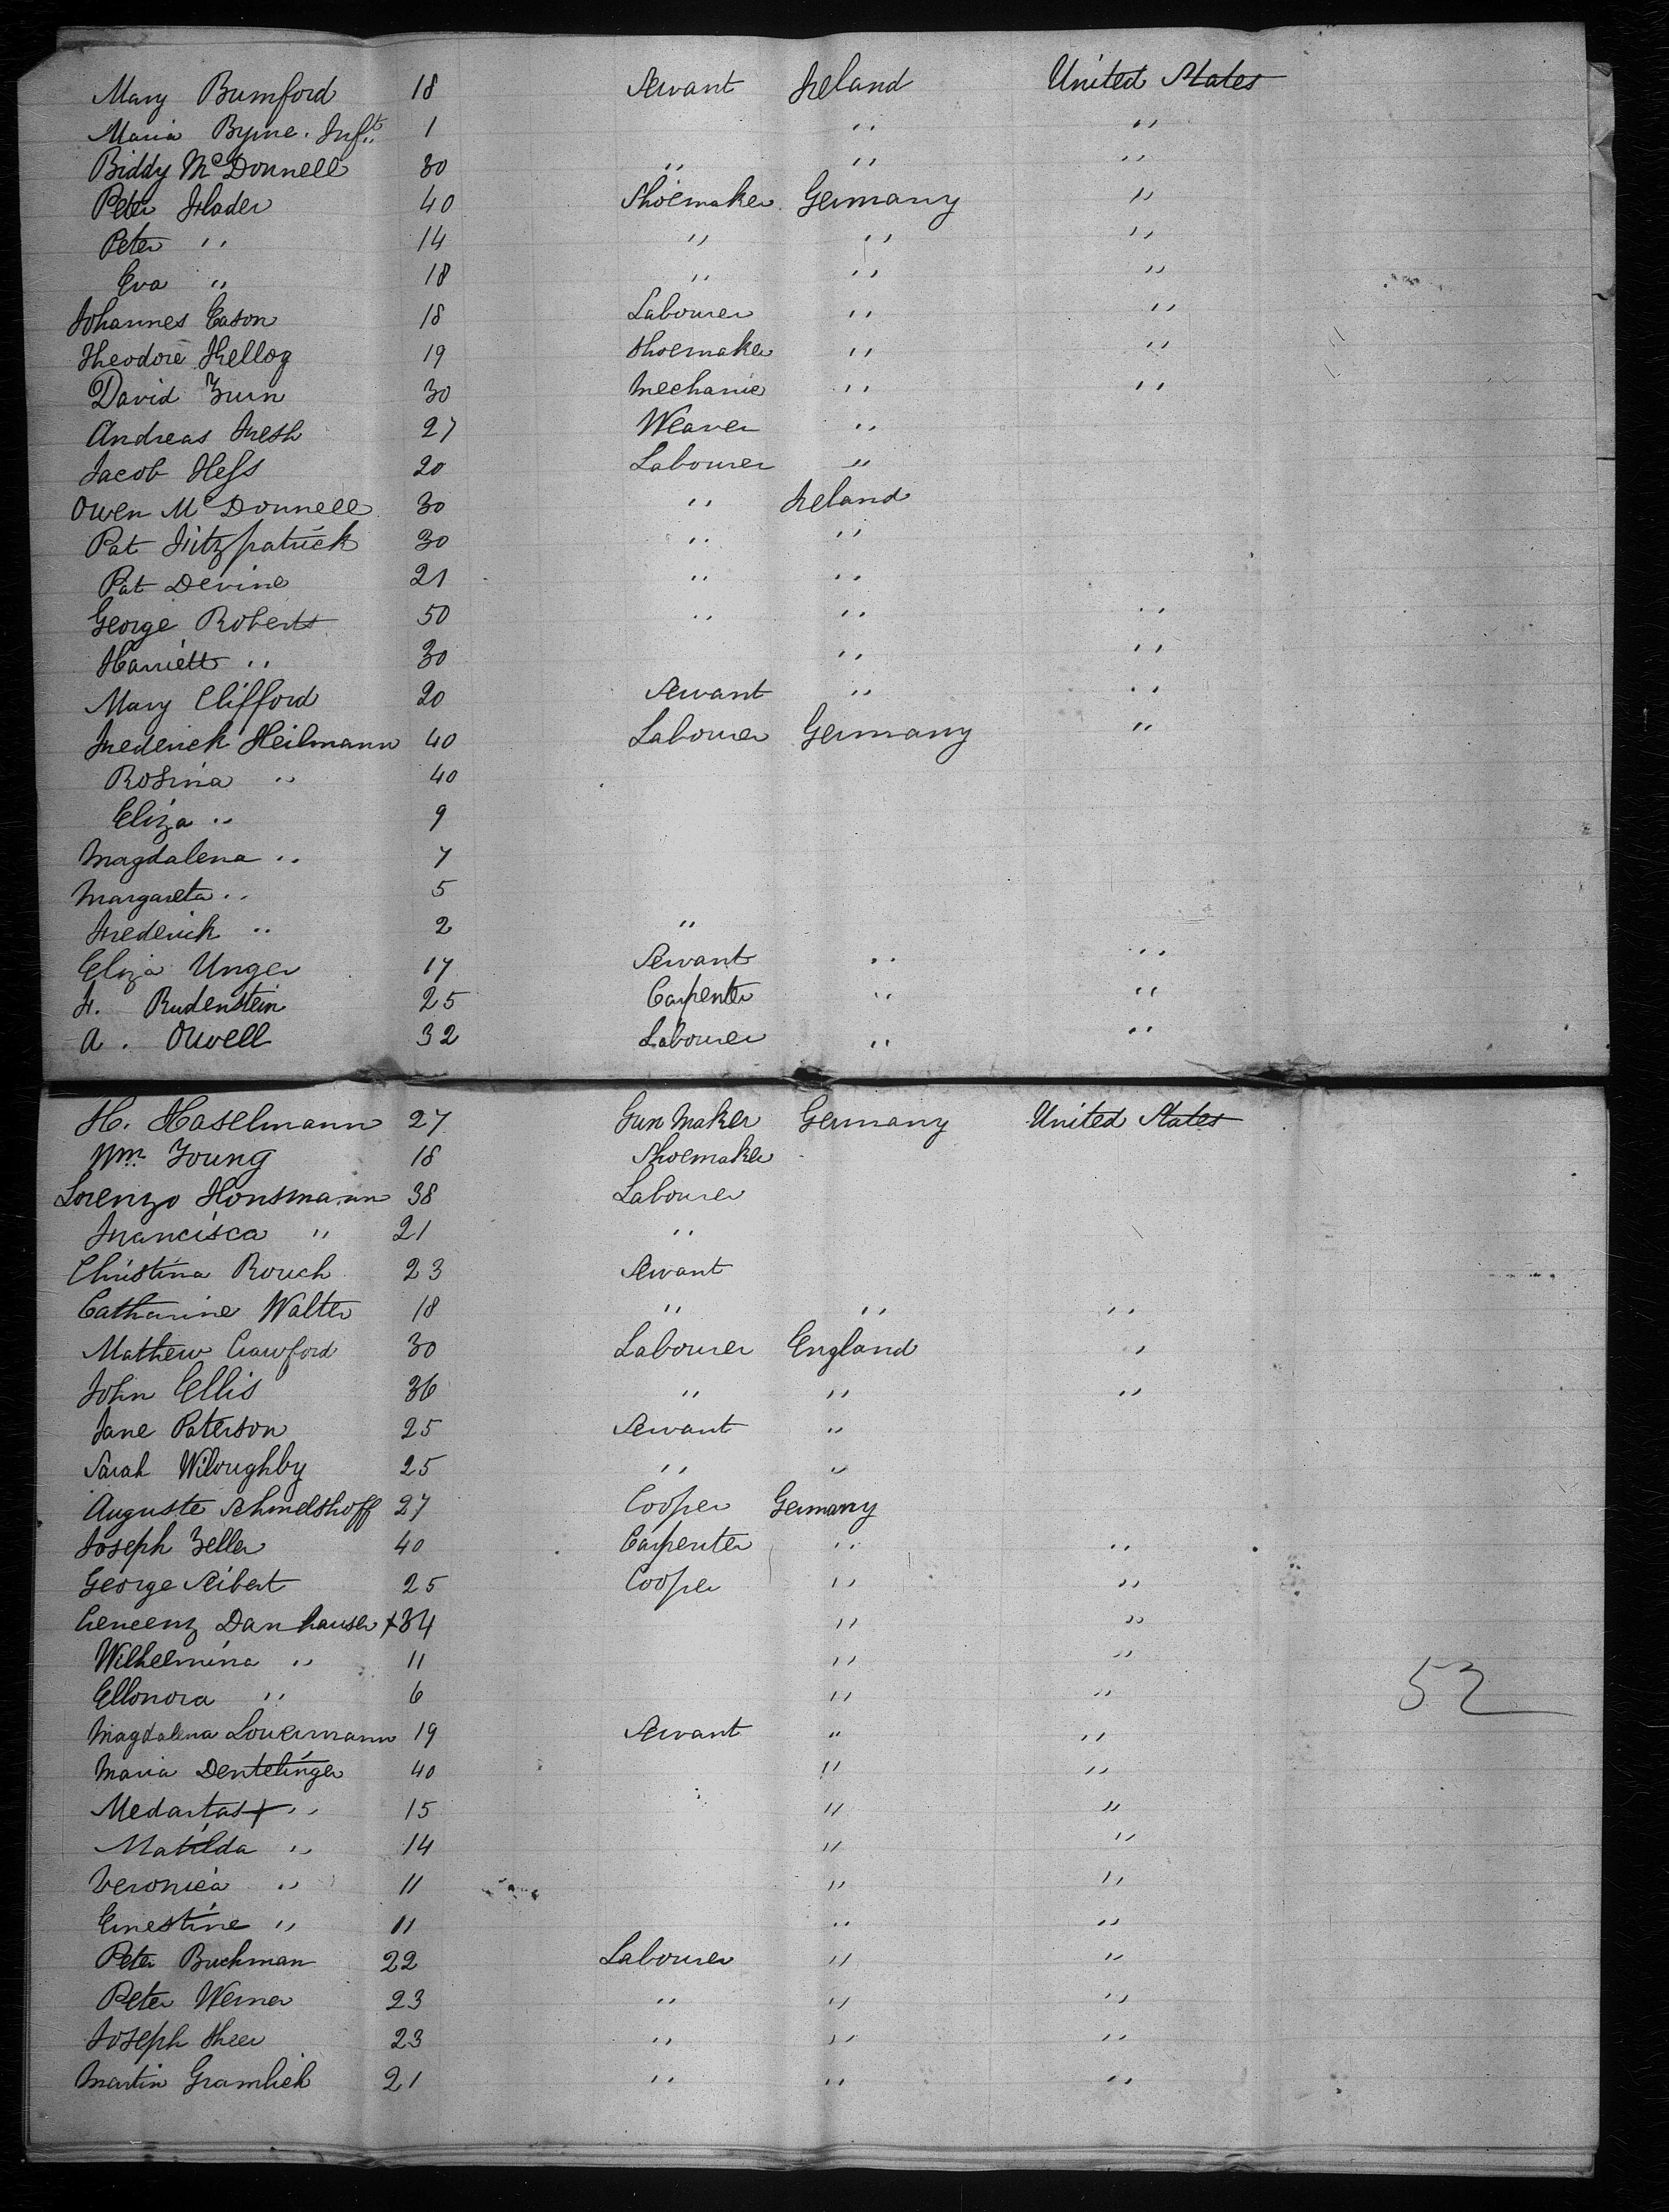 Mary Bumford 18 Servant Ireland United States
Maria Byrne. Inft. 1 " "
Biddy McDonnell 30 " " "
Peter Flader 40 Shoemaker Germany "
Peter " 14 " " "
Eva " 18 " " "
Johannes Eason 18 Labourer " "
Theodore Kellog 19 Shoemaker " "
David Zurn 30 Mechanic " "
Andreas Fresh 27 Weaver "
Jacob Hess 20 Labourer "
Owen McDonnell 30 " Ireland
Pat Fitzpatrick 30 " "
Pat Devine 21 " "
George Roberts 50 " " "
Harriett " 30 " "
Mary Clifford 20 Servant " "
Frederick Heilmann 40 Labourer Germany "
Rosina " 40
Eliza " 9
Magdalena " 7
Margareta " 5
Frederick " 2 "
Eliza Unger 17 Servant " "
F. Rudenstein 25 Carpenter " "
A. Orwell 32 Labourer " "
H. Haselmann 27 Gun Maker Germany United States
Wm. Young 18 Shoemaker
Lorenzo Honsmann 38 Labourer
Francisca " 21 "
Christina Rouch 23 Servant
Catharine Walter 18 " " "
Mathew Crawford 30 Labourer England "
John Ellis 36 " " "
Jane Paterson 25 Servant "
Sarah Wiloughby 25 " "
Auguste Schmelshoff 27 Cooper Germany
Joseph Zeller 40 Carpenter " "
George Seibert 25 Cooper " "
Danhauser + 34 " "
Wilhelmina " 11 " "
Ellonora " 6 " "
53
Magdalena Louermann 19 Servant " "
Maria Dentelinger 40 " "
Medartas + " 15 " "
Matilda " 14 " "
Veronica " 11 " "
Ernestine " 11 " "
Peter Buchman 22 Labourer " "
Peter Werner 23 " " "
Joseph Sheer 23 " " "
Martin Gramlich 21 " " "